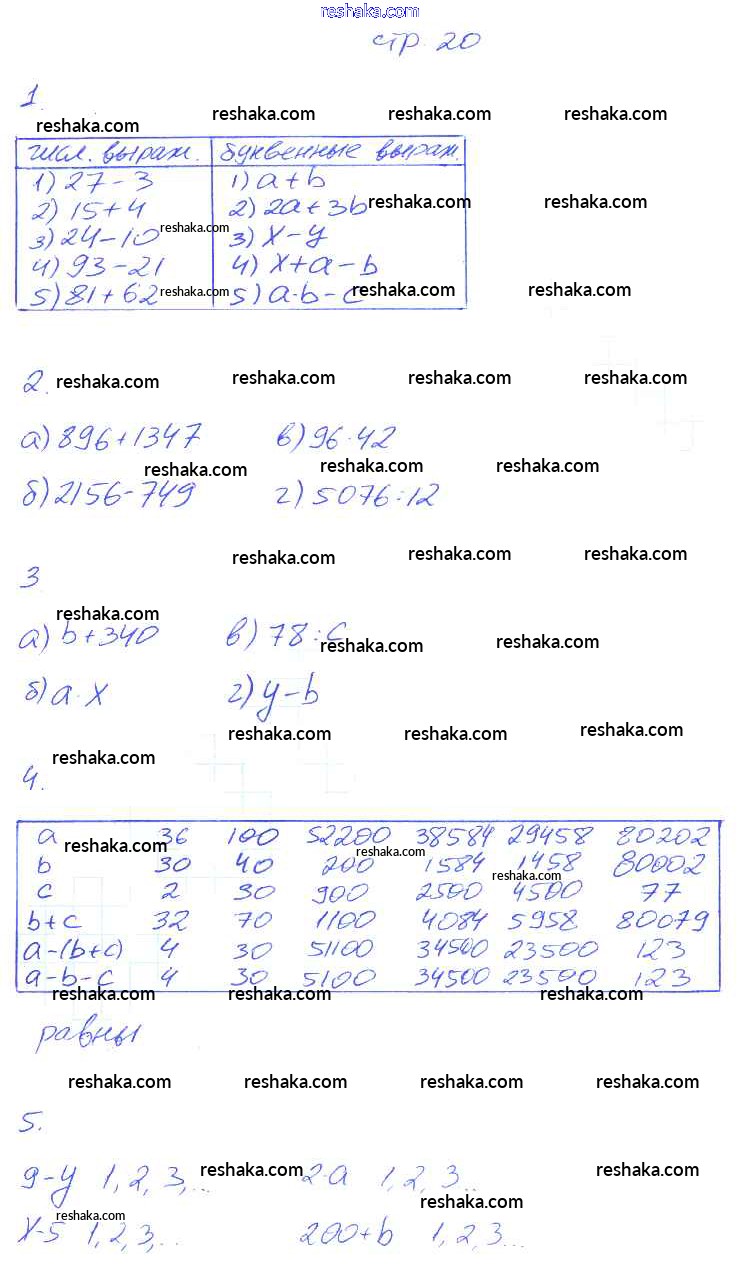 reshaka.com
стр. 20
1.
reshaka.com reshaka.com reshaka.com reshaka.com
числ. выраж. буквенные выраж.
1) 27-3 1) a+b
2) 15+4 2) 2a+3b reshaka.com reshaka.com
3) 24-10 reshaka.com 3) x-y
4) 93-21 4) x+a-b
5) 81+62 reshaka.com 5) a·b-c reshaka.com reshaka.com
2. reshaka.com reshaka.com reshaka.com reshaka.com
а) 896+1347 в) 96·42
reshaka.com reshaka.com reshaka.com
б) 2156-749 г) 5076:12
reshaka.com reshaka.com reshaka.com
3
reshaka.com
а) b+340 в) 78:c reshaka.com reshaka.com
б) a·x г) y-b
reshaka.com reshaka.com reshaka.com
reshaka.com
4.
a 36 100 52200 38584 29458 80202
reshaka.com reshaka.com
b 30 40 200 1584 1458 80002
reshaka.com
c 2 30 900 2500 4500 77
b+c 32 70 1100 4084 5958 80079
a-(b+c) 4 30 51100 34500 23500 123
a-b-c 4 30 5100 34500 23500 123
reshaka.com reshaka.com reshaka.com
равны
reshaka.com reshaka.com reshaka.com reshaka.com
5.
9-y 1, 2, 3,... reshaka.com 2·a 1, 2, 3... reshaka.com
reshaka.com reshaka.com
x-5 1, 2, 3,... 200+b 1, 2, 3...